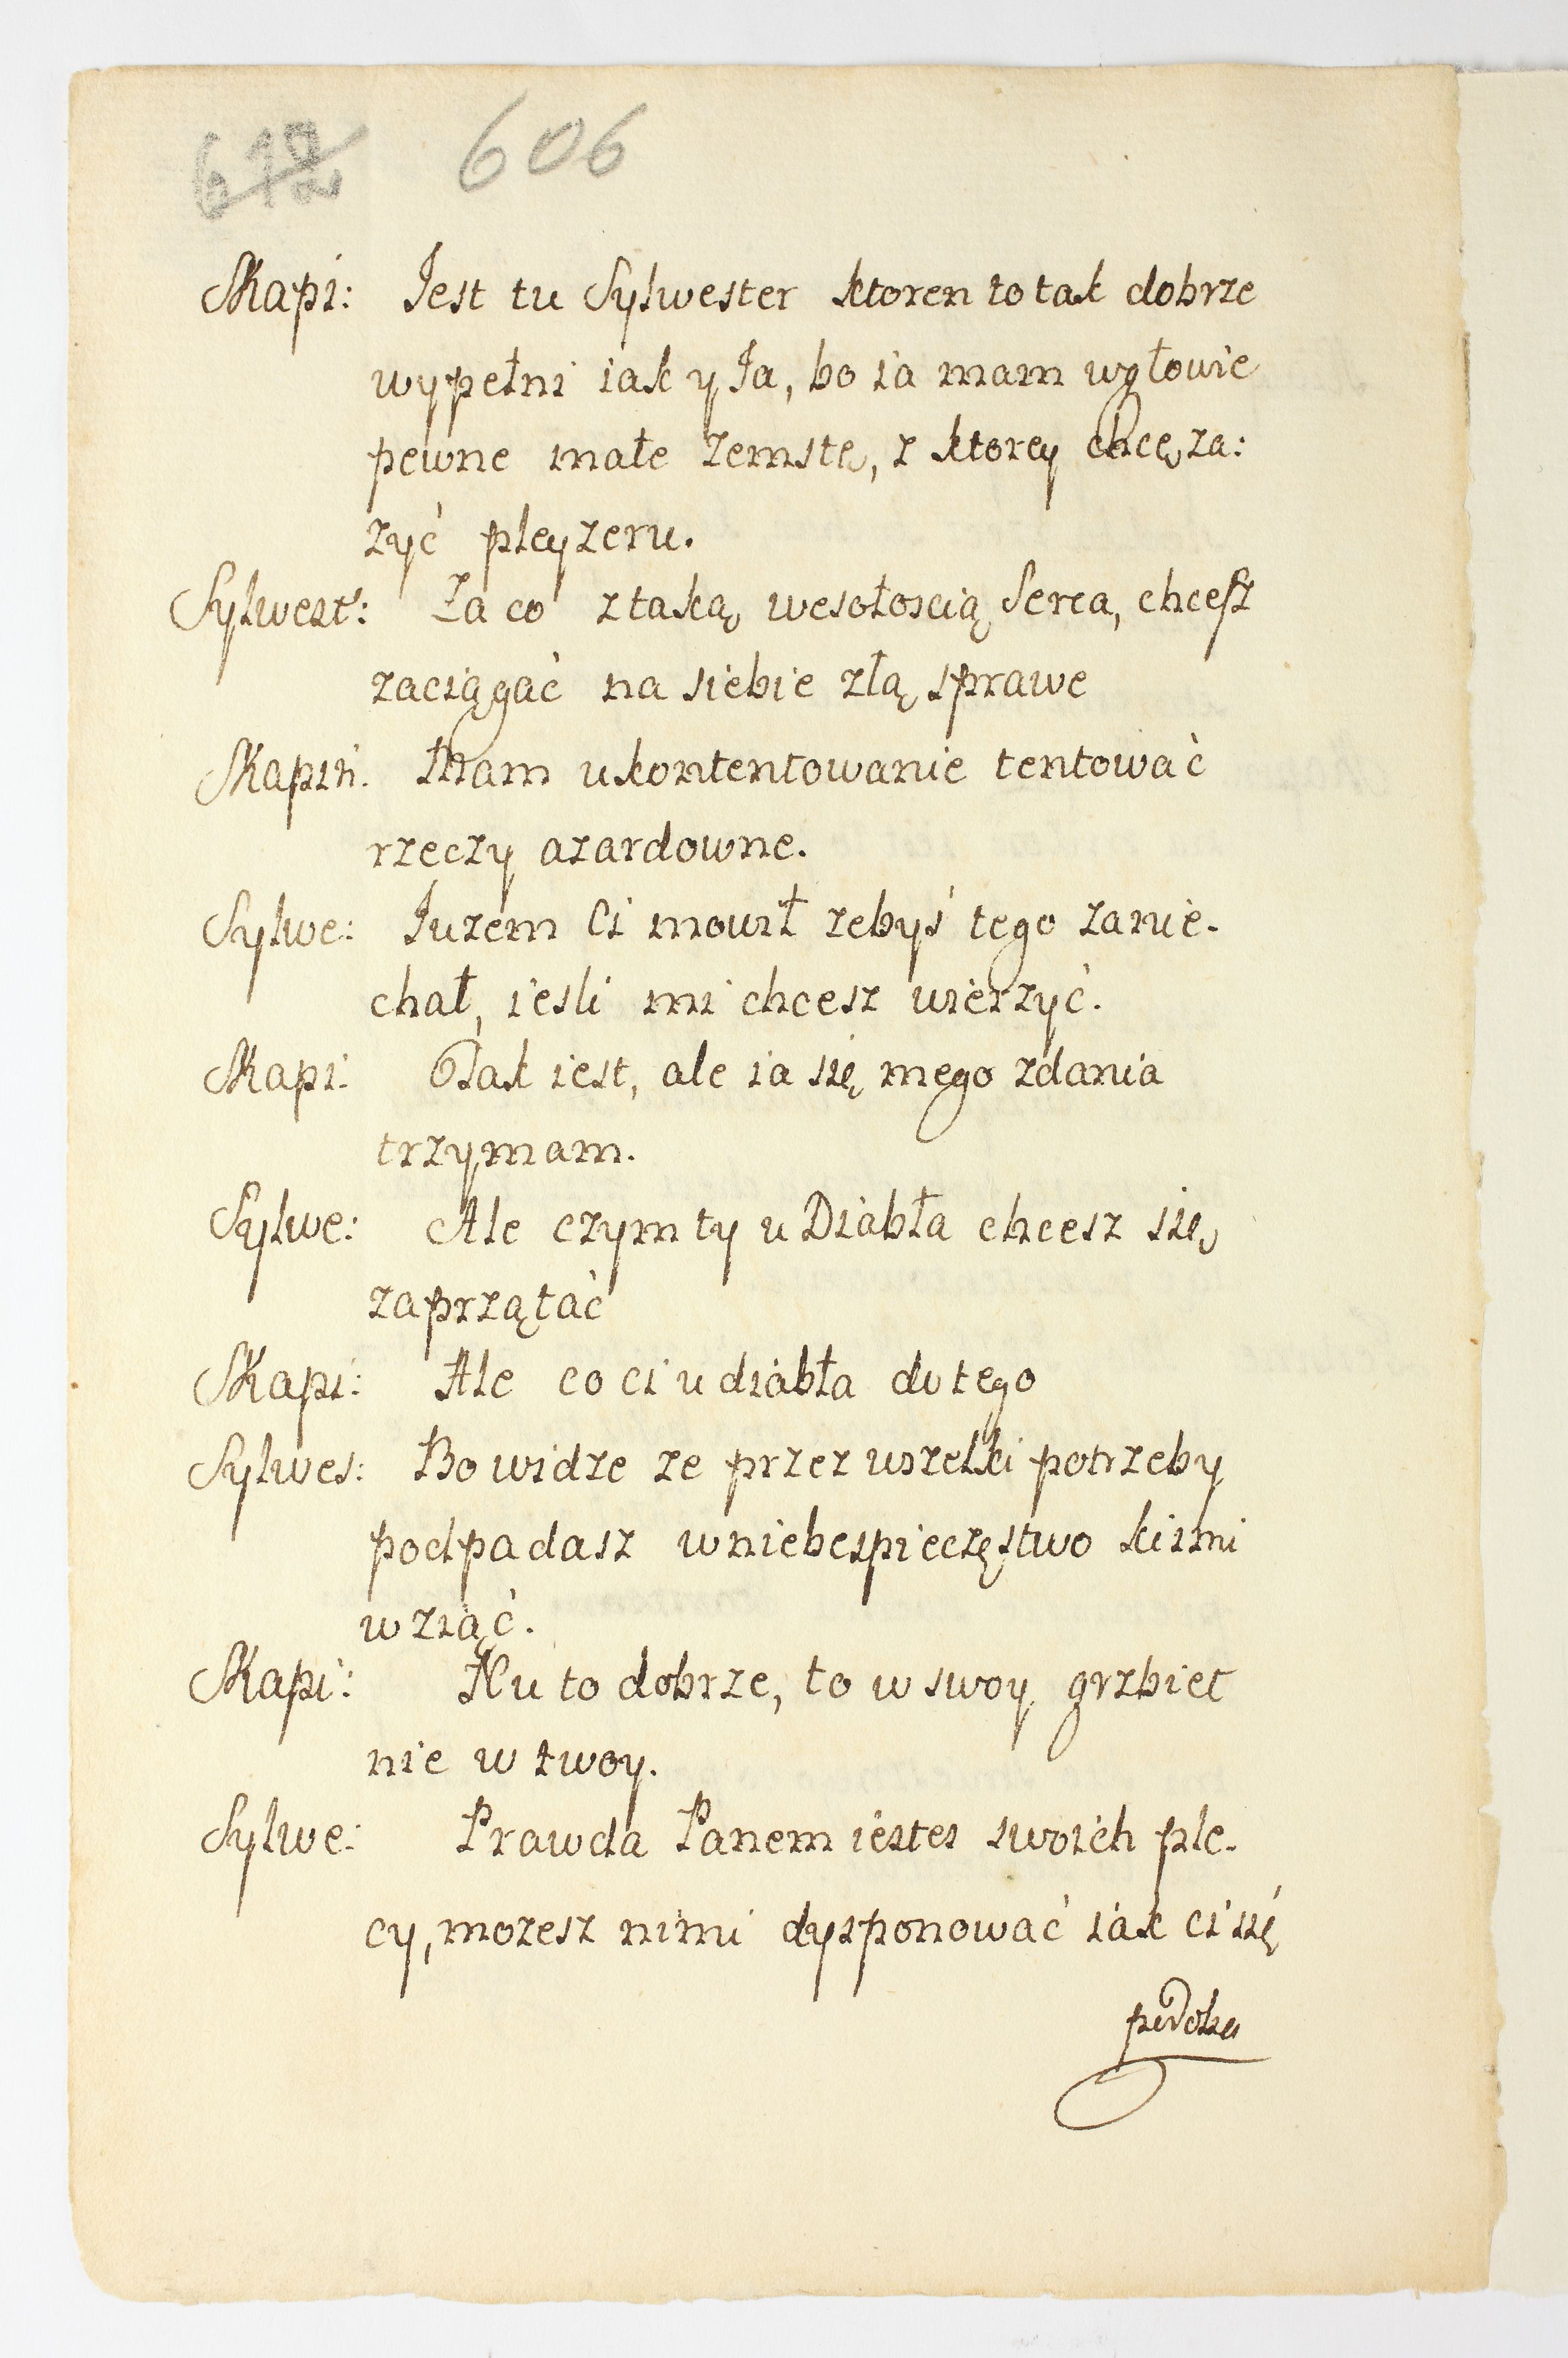 612 606
Skapi: Jest tu Sylwester ktoren to tak dobrze
wypełni iak y Ja, bo ia mam wgłowie
pewne małe zemstę, z ktorey chcę za:
zyć pleyzeru.
Sylwest: Za co ztaką wesołoscią Serca, chcesz
zaciągać na siebie złą sprawe
Skapin. Mam ukontentowanie tentować
rzeczy azardowne.
Sylwe: Juzem Ci mowił zebyś tego zanie-
chał, iesli mi chcesz wierzyć.
Skapi: Tak iest, ale ia się mego zdania
trzymam.
Sylwe: Ale czym ty u Diabła chcesz się
zaprzątać
Skapi: Ale co ci u diabła do tego
Sylwes: Bo widze ze przez wszelki potrzeby
podpadasz wniebespieczęstwo kiimi
wziąć.
Skapi: Nu to dobrze, to w swoy grzbiet
nie w twoy.
Sylwe: Prawda Panem iestes swoich ple-
cy, mozesz nimi dysponować iak ci się